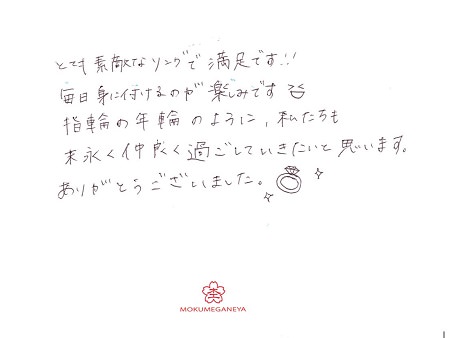 とても素敵なリングで満足です!!
毎日身に付けるのが楽しみです
指輪の年輪のように、私たちも
末永く仲良く過ごしていきたいと思います。
ありがとうございました。
MOKUMEGANEYA